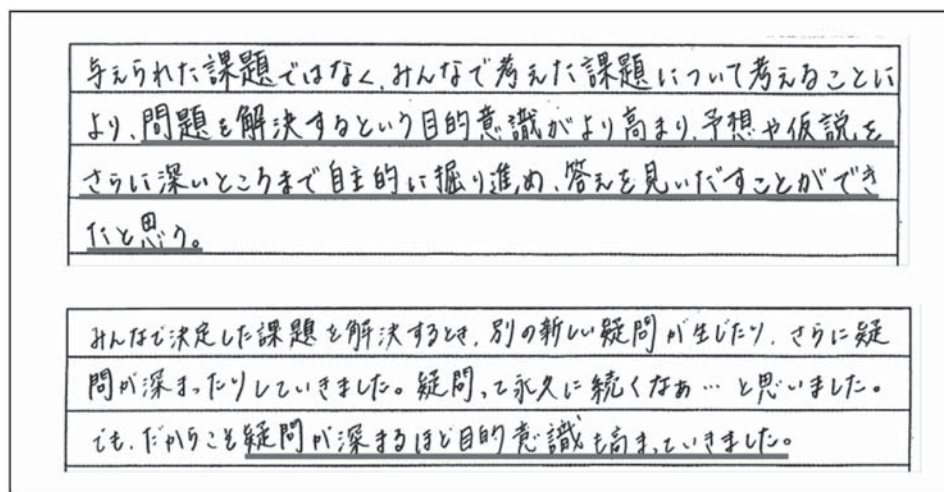 与えられた課題ではなく、みんなで考えた課題について考えることに
より、問題を解決するという目的意識がより高まり、予想や仮説を
さらに深いところまで自主的に掘り進め、答えを見いだすことができ
たと思う。
みんなで決定した課題を解決するとき、別の新しい疑問が生じたり、さらに疑
問が深まったりしていきました。疑問って永久に続くなぁ…と思いました。
でも、だからこそ疑問が深まるほど目的意識も高まっていきました。